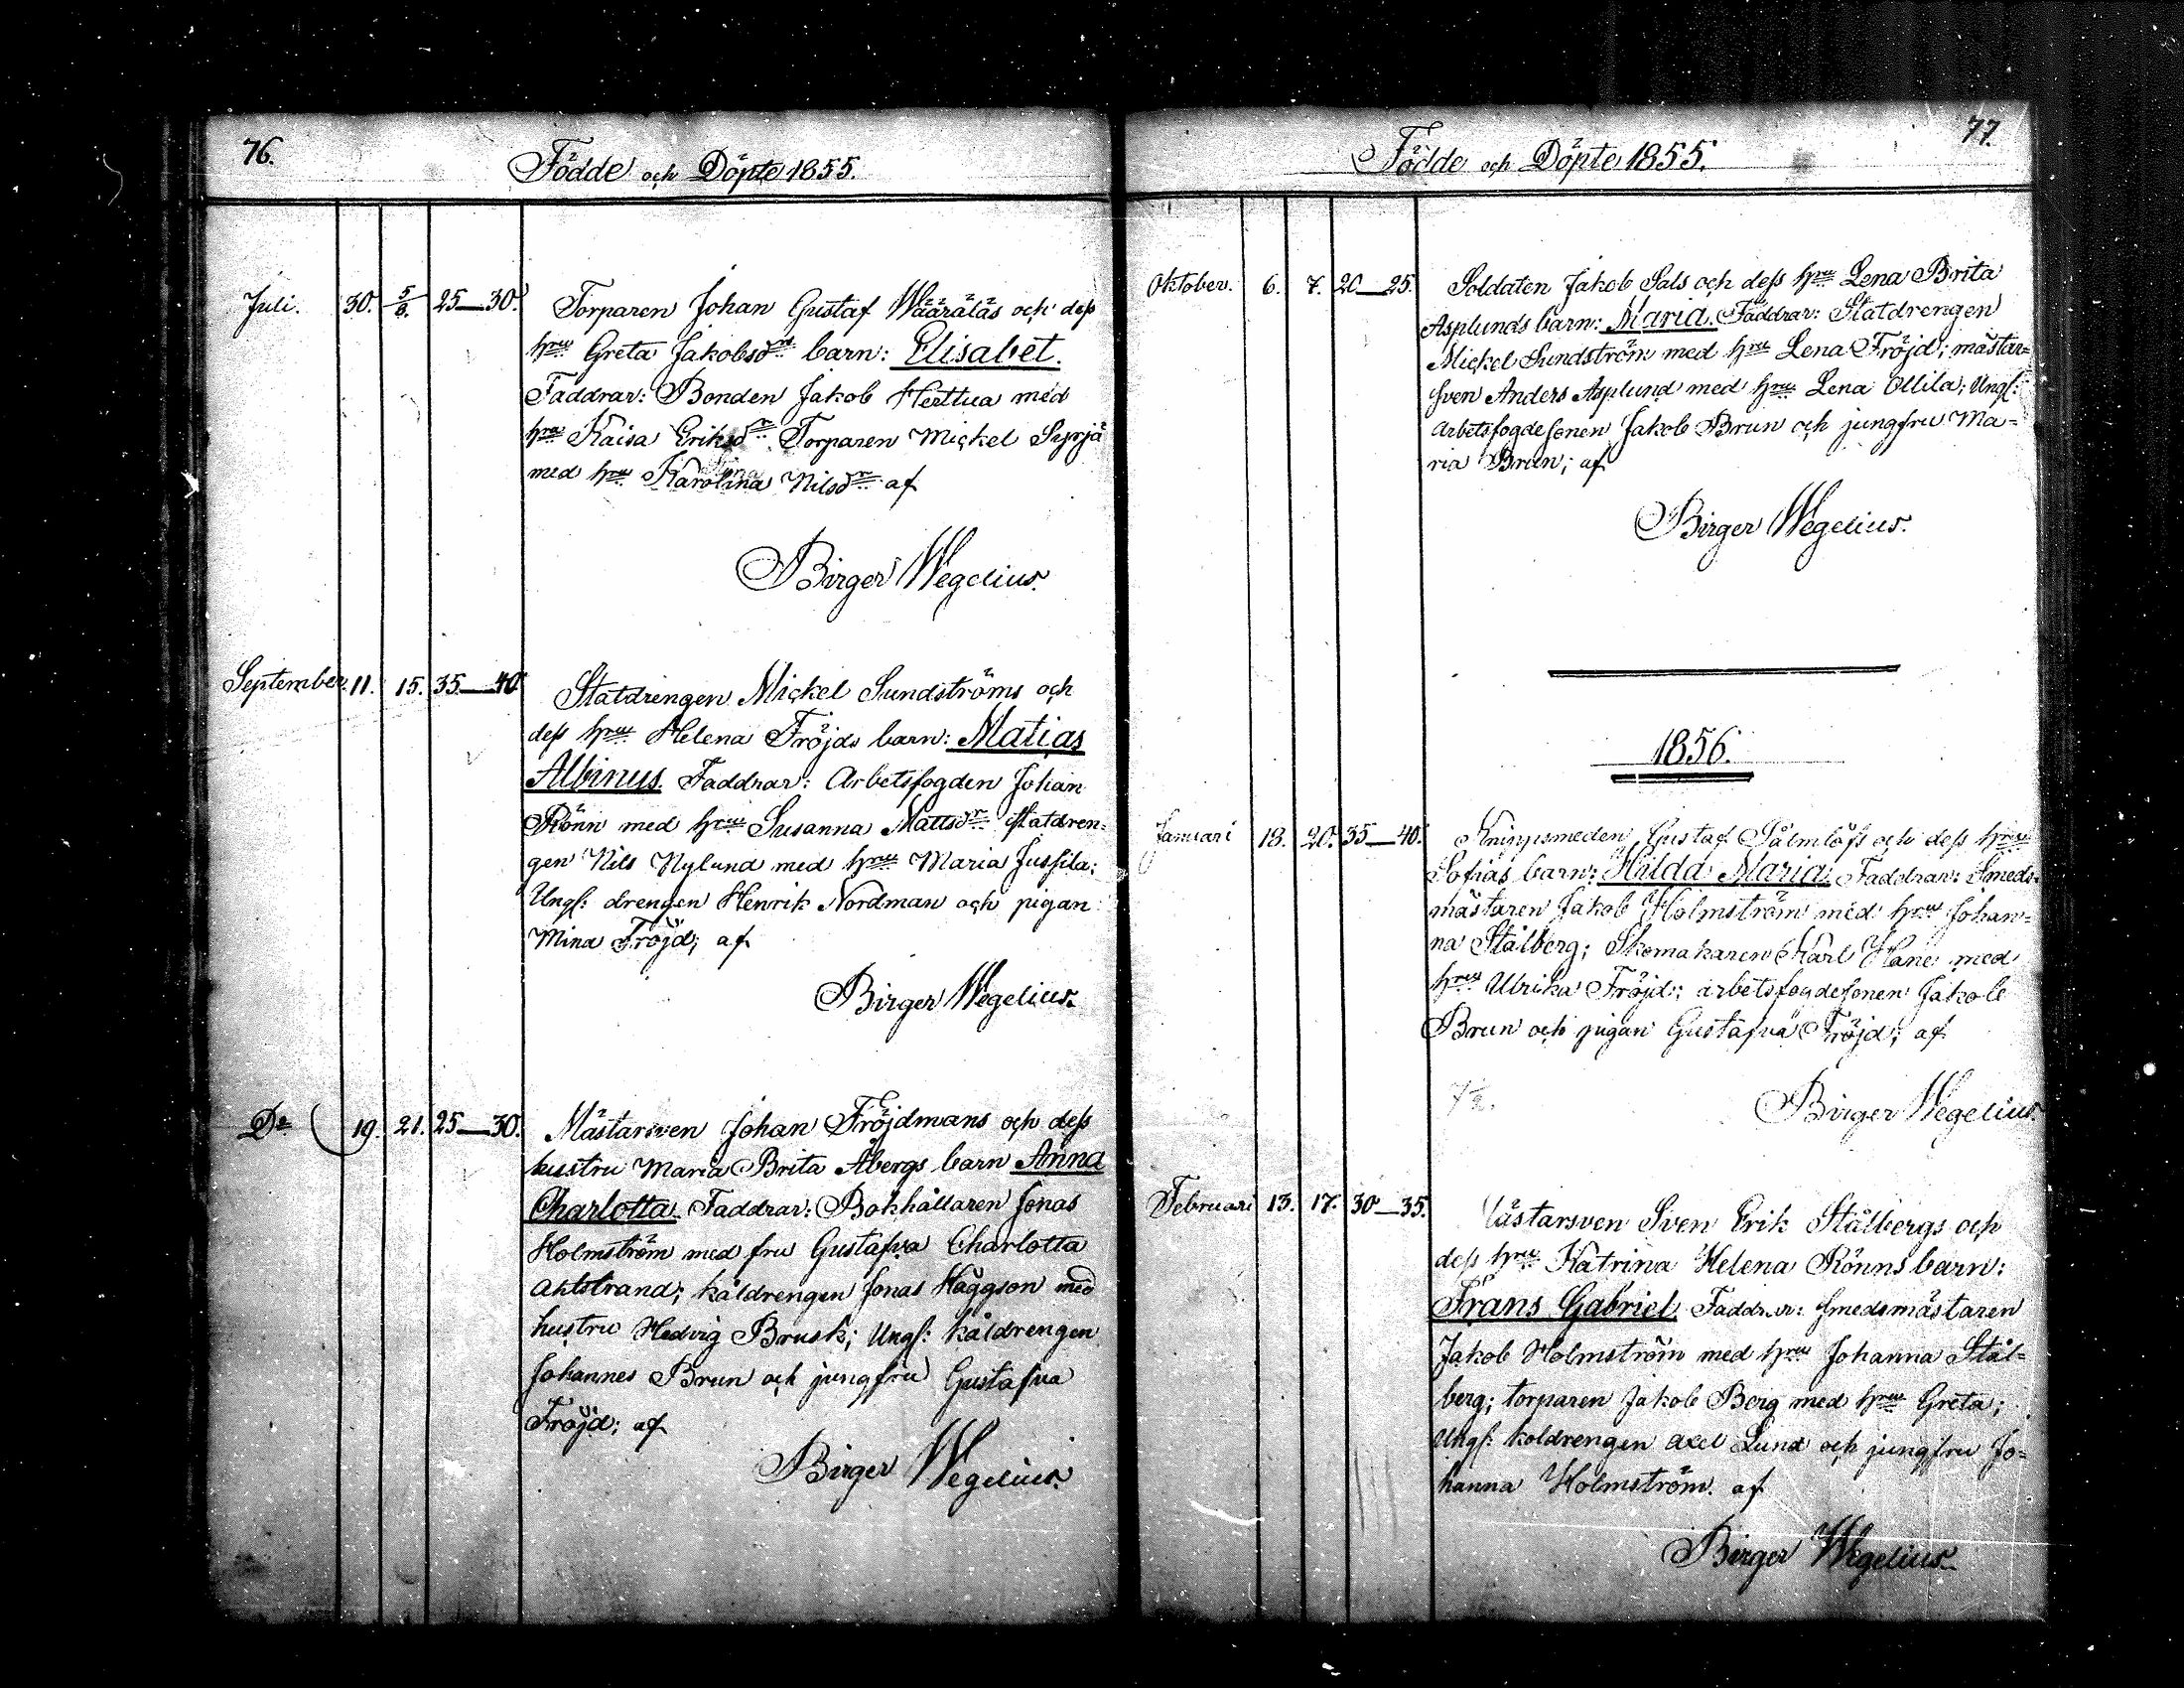 76.
Födde och Döpte 1855.
Juli. 30. 5/8. 25—30.
Torparen Johan Gustaf Wääräläs och dess
hru Greta Jakobsdr barn: Elisabet.
Faddrar: Bonden Jakob Herttua med
hru Kaisa Eriksdr Torparen Mickel Syrjä
med hru Karolina Nilsdr af
Birger Wegelius.
September. 11. 15. 35—40.
Statdrengen Mickel Sundströms och
dess hru Helena Fröjds barn: Matias
Albinus. Faddrar: Arbetsfogden Johan
Rönn med hru Susanna Mattsdr statdren=
gen Nils Nylund med hru Maria Jussila;
Ungf: drengen Henrik Nordman och pigan
Mina Fröjd; af
Birger Wegelius.
Do 19. 21. 25—30.
Mästarsven Johan Fröjdmans och dess
hustru Maria Brita Åbergs barn Anna
Charlotta. Faddrar: Bokhållaren Jonas
Holmström med fru Gustafva Charlotta
Ahlstrand; kåldrengen Jonas Häggson med
hustru Hedvig Brusk; Ungf: kåldrengen
Johannes Brun och jungfru Gustafva
Fröjd; af
Birger Wegelius.
77.
Födde och Döpte 1855.
Oktober. 6. 7. 20—25.
Soldaten Jakob Sals och dess hru Lena Brita
Asplunds barn: Maria. Faddrar: Statdrengen
Mickel Sundström med hru Lena Fröjd; mästar=
sven Anders Asplund med hru Lena Ollila; Ungf:
Arbetsfogdesonen Jakob Brun och jungfru Ma=
ria Brun; af
Birger Wegelius.
1856.
Januari 18. 20. 35—40.
Knippsmeden Gustaf Palmlöfs och dess hru
Sofias barn: Hilda Maria. Faddrar: Smeds=
mästaren Jakob Holmström med hru Johan=
na Stålberg; Skomakaren Karl Hane med
hru Ulrika Fröjd; arbetsfogdesonen Jakob
Brun och pigan Gustafva Fröjd; af
Birger Wegelius.
Februari 13. 17. 30—35.
Mästarsven Sven Erik Stålbergs och
dess hru Katrina Helena Rönns barn:
Frans Gabriel. Faddrar: smedsmästaren
Jakob Holmström med hru Johanna Stål=
berg; torparen Jakob Berg med hru Greta;
Ungf: koldrengen Axel Lund och jungfru Jo=
hanna Holmström. af
Birger Wegelius.